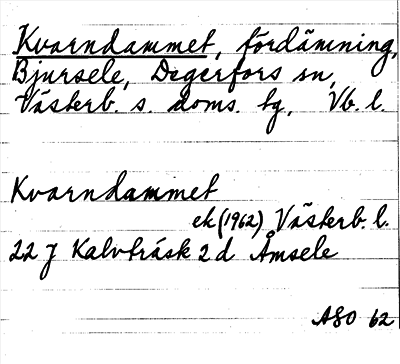 Kvarndammet, fördämning,
Bjursele, Degerfors sn,
Västerb. s. doms. tg, Vb. l.
Kvarndammet
ek (1962) Västerb. l.
22 J Kalvträsk 2 d Åmsele
ASO 62